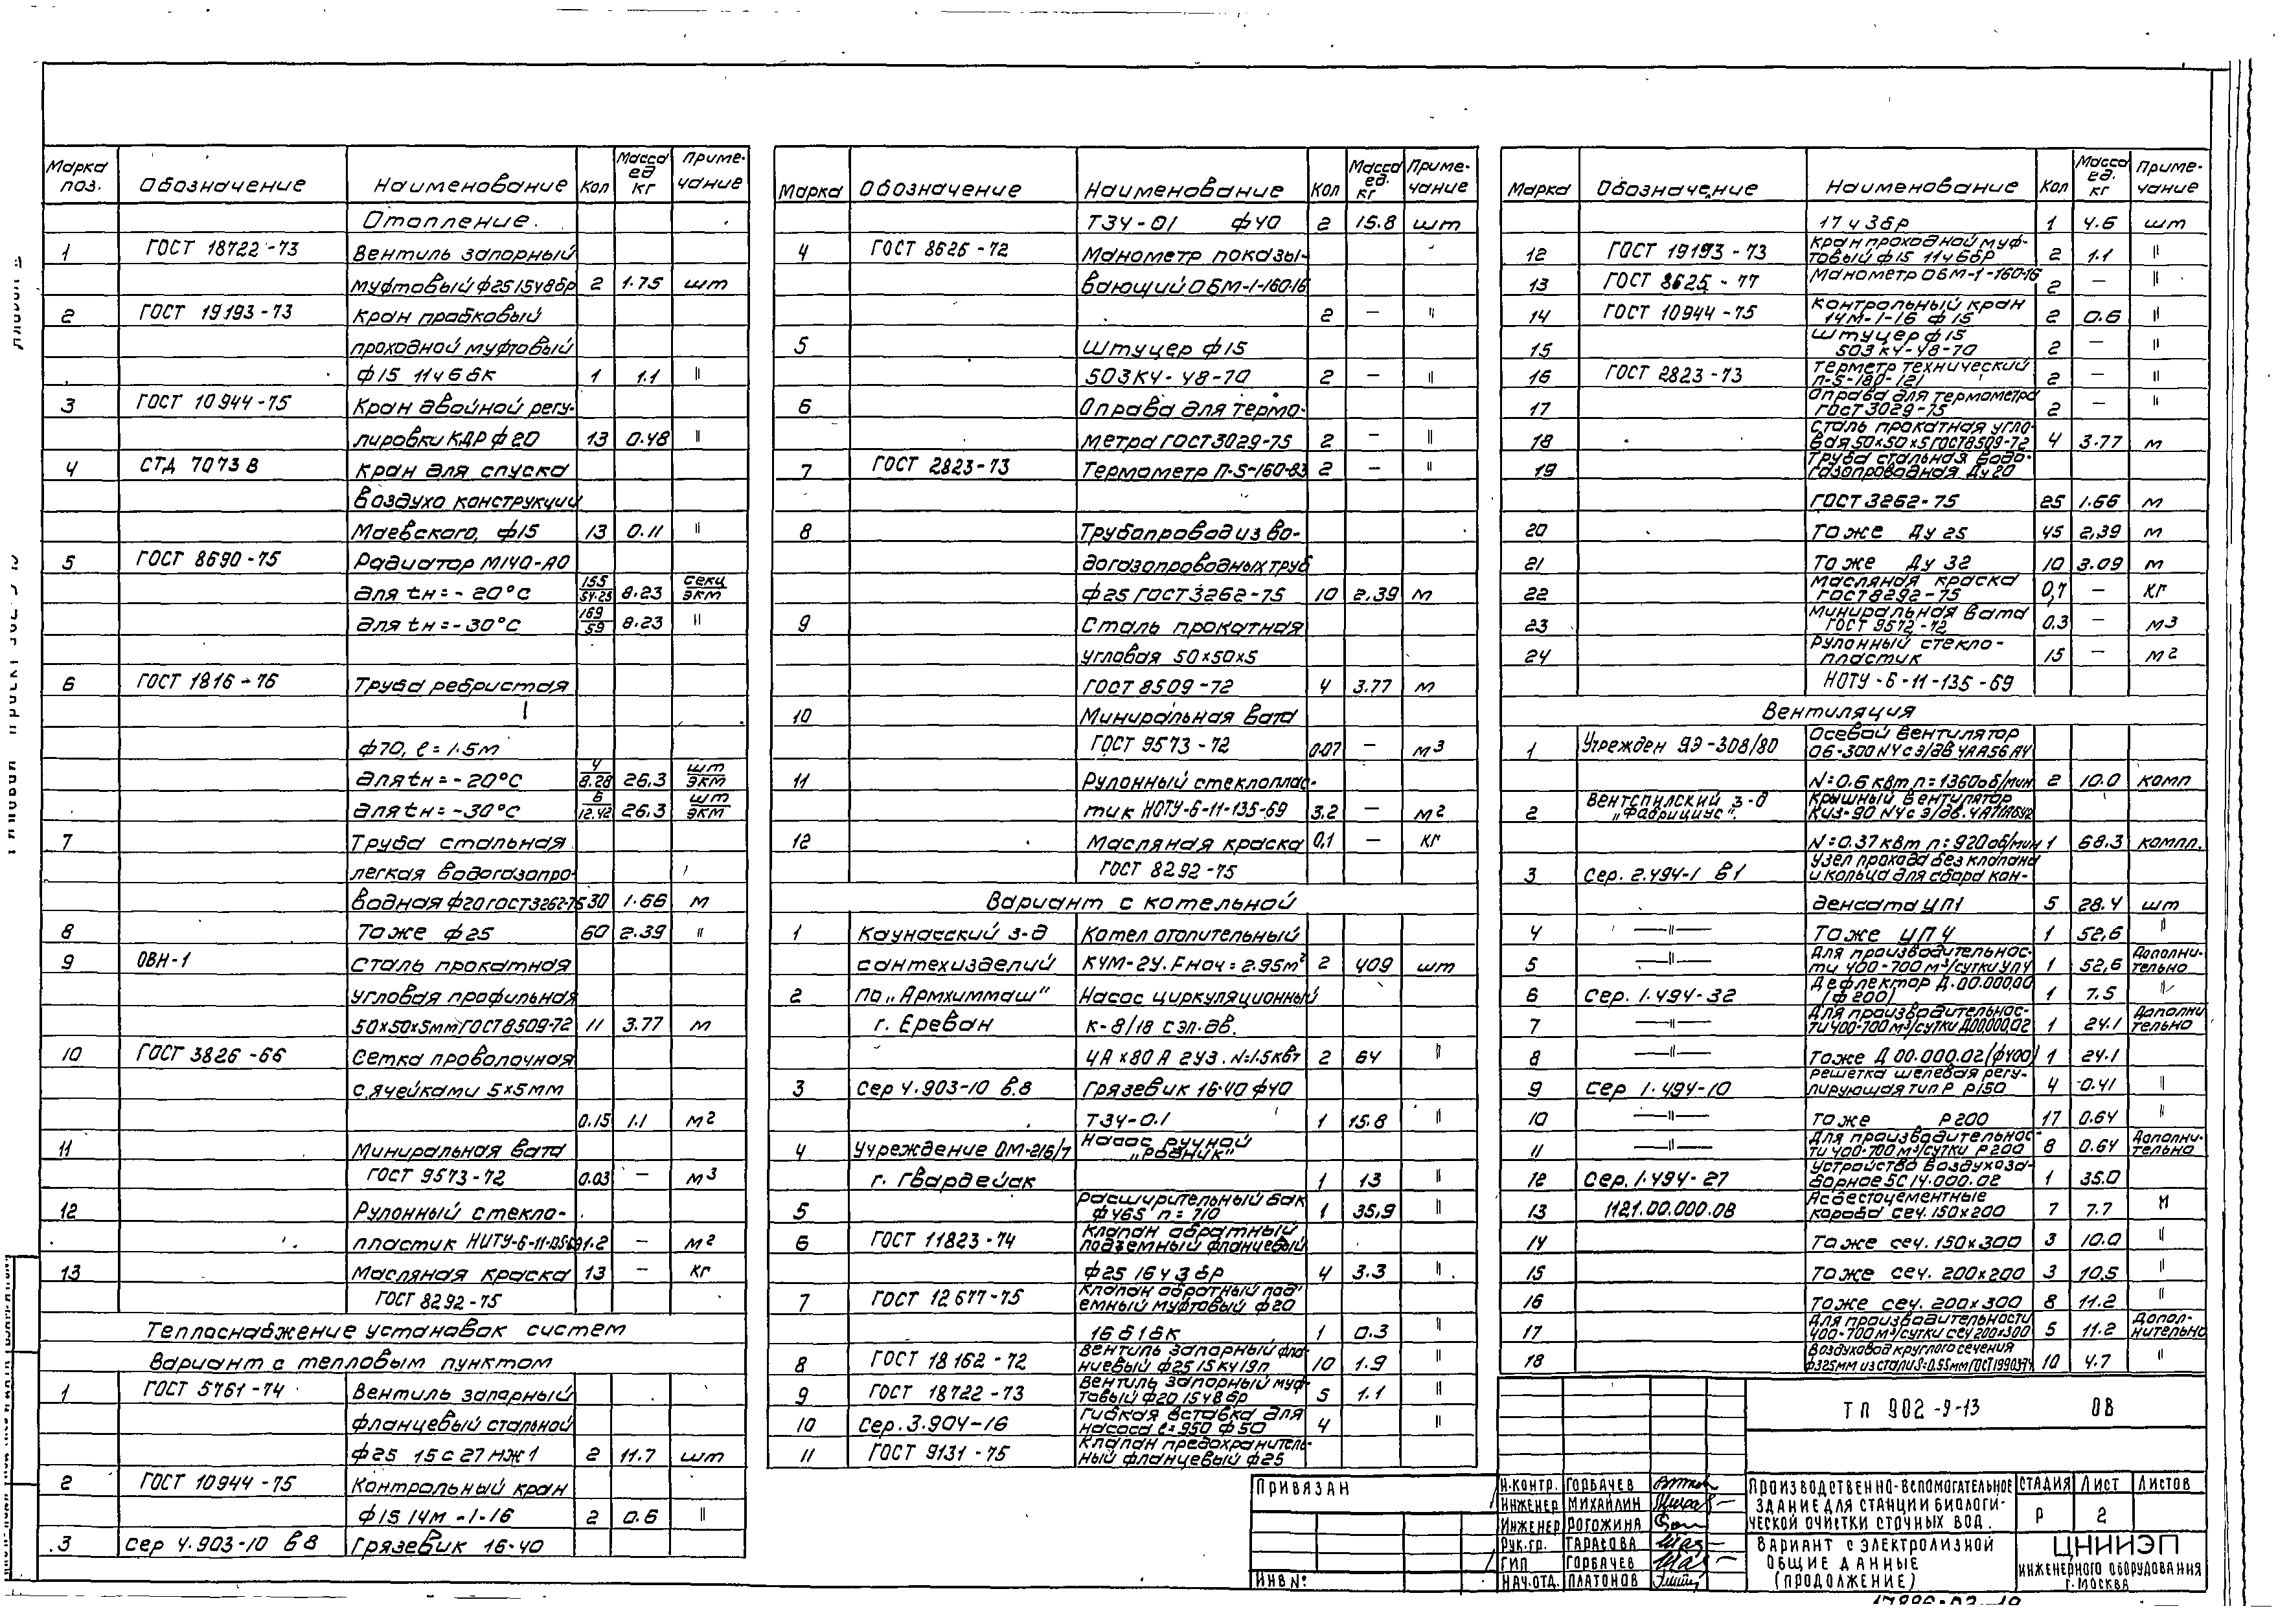 Марка поз. Обозначение Наименование Кол Масса ед кг Приме-чание
Отопление.
1 ГОСТ 18722-73 Вентиль запорный
муфтовый ф25 15ч8бр 2 1.75 шт
2 ГОСТ 19193-73 Кран пробковый
проходной муфтовый
ф15 11ч6бк 1 1.1 "
3 ГОСТ 10944-75 Кран двойной регу-
лировки КДР ф20 13 0.48 "
4 СТД 7073В Кран для спуска
воздуха конструкции
Маевского, ф15 13 0.11 "
5 ГОСТ 8690-75 Радиатор М140-АО
для tн=-20°С 155/54.25 8.23 секц/экм
для tн=-30°С 169/59 8.23 "
6 ГОСТ 1816-76 Труба ребристая
ф70, ℓ=1.5м
для tн=-20°С 4/8.28 26.3 шт/экм
для tн=-30°С 6/12.42 26.3 шт/экм
7 Труба стальная
легкая водогазопро-
водная ф20 ГОСТ 3262-75 30 1.66 м
8 Тоже ф25 60 2.39 "
9 ОВН-1 Сталь прокатная
угловая профильная
50х50х5мм ГОСТ 8509-72 11 3.77 м
10 ГОСТ 3826-66 Сетка проволочная
с ячейками 5х5мм
0.15 1.1 м2
11 Миниральная вата
ГОСТ 9573-72 0.03 — м3
12 Рулонный стекло-
пластик НИТУ-6-11-135-69 1.2 — м2
13 Масляная краска 13 — кг
ГОСТ 8292-75
Теплоснабжение установок систем
Вариант с тепловым пунктом
1 ГОСТ 5761-74 Вентиль запорный
фланцевый стальной
ф25 15с27нж1 2 11.7 шт
2 ГОСТ 10944-75 Контрольный кран
ф15 14м-1-16 2 0.6 "
3 сер 4.903-10 в8 Грязевик 16-40
Марка Обозначение Наименование Кол Масса ед. кг Приме-чание
Т34-01 ф40 2 15.8 шт
4 ГОСТ 8625-72 Манометр показы-
вающий ОБМ-1-160-16
2 — "
5 Штуцер ф15
503К4-48-70 2 — "
6 Оправа для термо-
метра ГОСТ 3029-75 2 — "
7 ГОСТ 2823-73 Термометр П-5-160-83 2 — "
8 Трубопровод из во-
догазопроводных труб
ф25 ГОСТ 3262-75 10 2.39 м
9 Сталь прокатная
угловая 50х50х5
ГОСТ 8509-72 4 3.77 м
10 Миниральная вата
ГОСТ 9573-72 0.07 — м3
11 Рулонный стеклоплас-
тик НОТУ-6-11-135-69 3.2 — м2
12 Масляная краска 0,1 — кг
ГОСТ 8292-75
Вариант с котельной
1 Каунасский з-д Котел отопительный
сантехизделий КЧМ-2У. Fноч=2.95м2 2 409 шт
2 по „Армхиммаш" Насос циркуляционный
г. Ереван К-8/18 с эл.дв.
4А х80 А 2У3. N=1.5кВт 2 64 "
3 Сер 4.903-10 в.8 Грязевик 16-40 ф40
Т34-0.1 1 15.8 "
4 Учреждение ОМ-216/7 Насос ручной „Родник"
г. Гвардейск 1 13 "
5 Расширительный бак ф465 h=710 1 35,9 "
6 ГОСТ 11823-74 Клапан обратный подземный фланцевый
ф25 16ч3бр 4 3.3 "
7 ГОСТ 12677-75 Клапан обратный под'емный муфтовый ф20
16б1бк 1 0.3 "
8 ГОСТ 18162-72 Вентиль запорный фла-нцевый ф25 15кч19п 10 1.9 "
9 ГОСТ 18722-73 Вентиль запорный муф-товый ф20 15ч8бр 5 1.1 "
10 Сер.3.904-16 Гибкая вставка для насоса ℓ=950 ф50 4 "
11 ГОСТ 9131-75 Клапан предохранитель-ный фланцевый ф25
Марка Обозначение Наименование Кол Масса ед. кг Приме-чание
17ч3бр 1 4.6 шт
12 ГОСТ 19193-73 Кран проходной муф-товый ф15 11ч6бр 2 1.1 "
13 ГОСТ 8625-77 Манометр ОБМ-1-160-16 2 — "
14 ГОСТ 10944-75 Контрольный кран 14М-1-16 ф15 2 0.6 "
15 Штуцер ф15 503К4-48-70 2 — "
16 ГОСТ 2823-73 Терметр технический П-5-180-121 2 — "
17 Оправа для термометра ГОСТ 3029-75 2 — "
18 Сталь прокатная угло-вая 50х50х5 ГОСТ 8509-72 4 3.77 м
19 Труба стальная водо-газопроводная Ду20
ГОСТ 3262-75 25 1.66 м
20 Тоже Ду 25 45 2,39 м
21 Тоже Ду 32 10 3.09 м
22 Масляная краска ГОСТ 8292-75 0,7 — кг
23 Миниральная вата ГОСТ 9572-72 0.3 — м3
24 Рулонный стекло-пластик 15 — м2
НОТУ-6-11-135-69
Вентиляция
1 Учрежден ЯЭ-308/80 Осевой вентилятор 06-300 N4 с э/дв 4АА56А4
N=0.6 кВт n=1360об/мин 2 10.0 комп
2 Вентспилский з-д „Фабрициус". Крышный вентилятор КЦ3-90 N4 с э/дв. 4А71А6У2
N=0.37 кВт n=920об/мин 1 68.3 компл.
3 Сер. 2.494-1 в1 Узел прохода без клапана и кольца для сбора кон-
денсата УП1 5 28.4 шт
4 —"— Тоже УП4 1 52,6 "
5 —"— Для производительнос-ти 400-700 м3/сутки УП4 1 52,6 Дополни-тельно
6 Сер. 1.494-32 Дефлектор Д.00.000.00 (ф200) 1 7.5 "
7 —"— Для производительнос-ти 400-700 м3/сутки Д00.000.02 1 24.1 Дополни тельно
8 —"— Тоже Д 00.000.02 (ф400) 1 24.1
9 Сер 1.494-10 Решетка щелевая регу-лирующая тип Р Р150 4 0.41 "
10 —"— Тоже Р200 17 0.64 "
11 —"— Для производительнос-ти 400-700м3/сутки Р200 8 0.64 Дополни-тельно
12 Сер. 1.494-27 Устройство воздухоза-борное 5С 14.000.02 1 35.0
13 1121.00.000.08 Асбестоцементные короба сеч. 150х200 7 7.7 М
14 Тоже сеч. 150х300 3 10.0 "
15 Тоже сеч. 200х200 3 10,5 "
16 Тоже сеч. 200х300 8 11.2 "
17 Для производительности 400-700 м3/сутки сеч 200х300 5 11.2 Допол-нительно
18 Воздуховод круглого сечения ф325мм из стали δ=0.55мм ГОСТ 19903-74 10 4.7 "
ТП 902-9-13 ОВ
Привязан
ИНВ №
Н.контр. Горбачев
Инженер Михайлин
Инженер Рогожина
Рук.гр. Тарасова
ГИП Горбачев
Нач.отд. Платонов
Производственно-вспомогательное
здание для станции биологи-
ческой очистки сточных вод.
Вариант с электролизной
Общие данные
(продолжение)
Стадия Лист Листов
Р 2
ЦНИИЭП
инженерного оборудования
г. Москва
17886-03-19